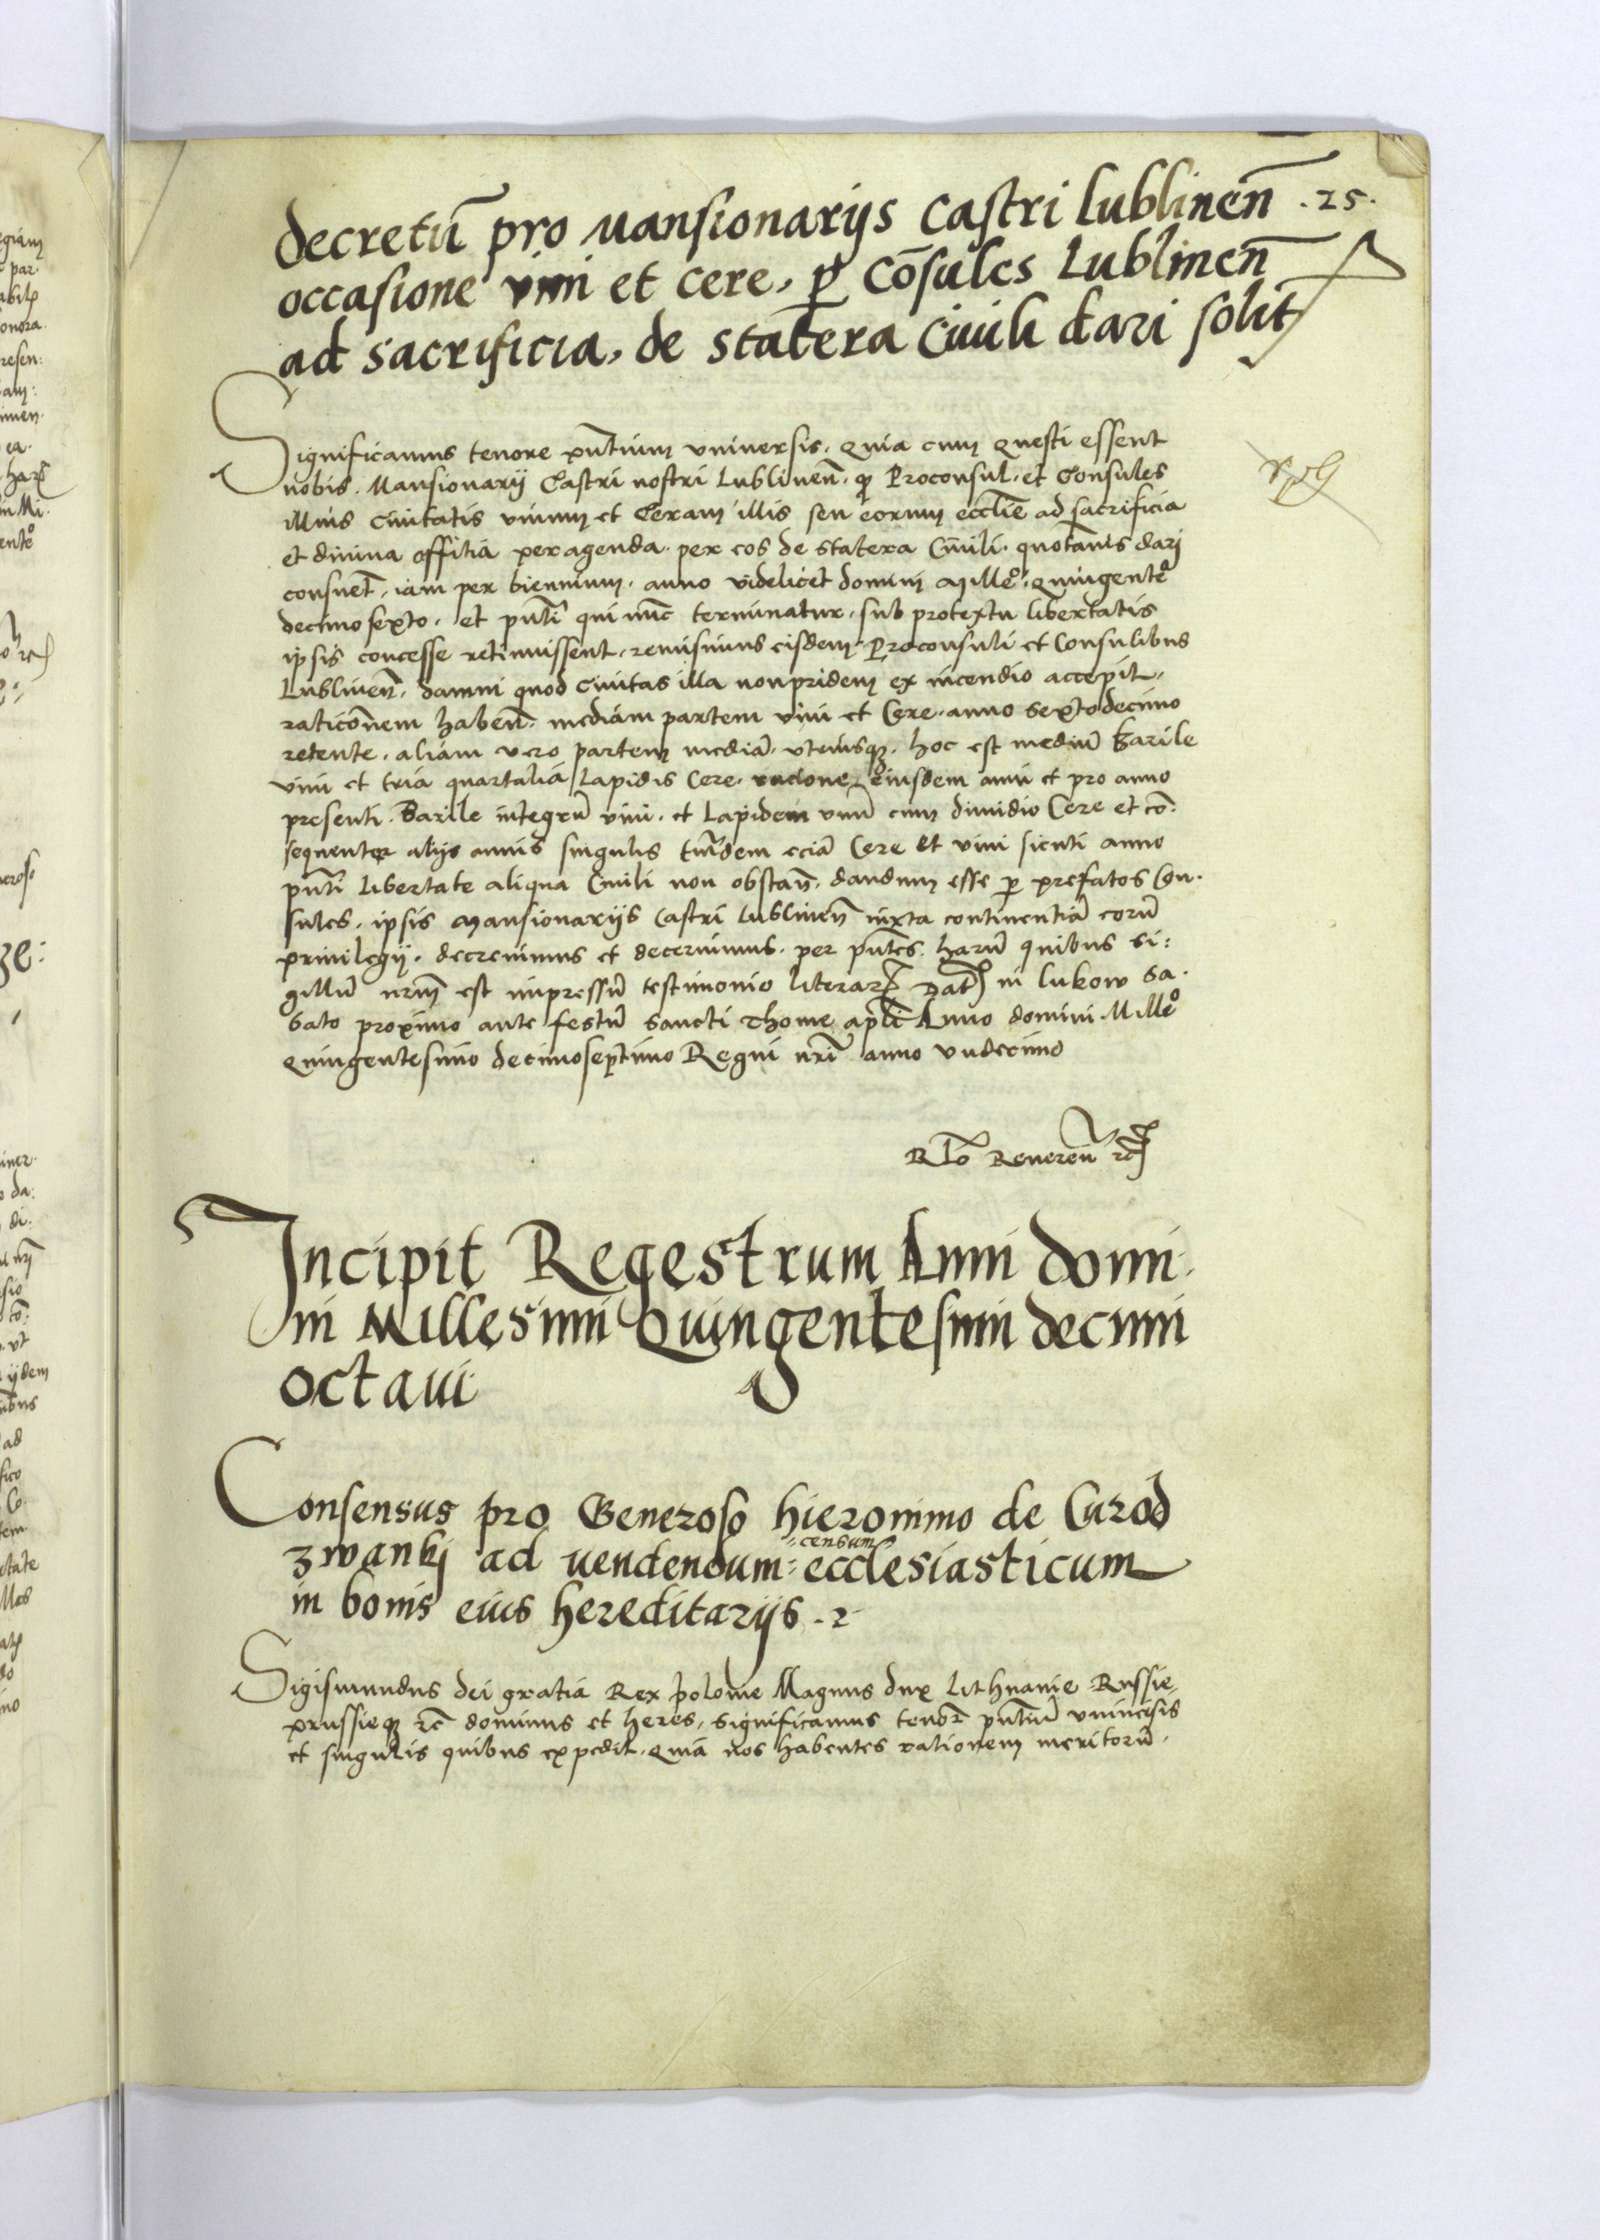 decretū pro Mansionarijs Castri Lublinen̄ .25.
occasione vini et cere, ꝑ Cōsules Lublinen̄
ad sacrificia, de statera Civili dari solit
Significamus tenore pn̄tium vniversis. Quia cum questi essent
nobis. Mansionarij Castri nostri Lublinen̄. ꝙ Proconsul. et Consules
illius Civitatis vinum et Ceram illis seu eorum eccl̄ie ad sacrificia
et divina offitia peragenda. per eos de statera Civili. quotannis dari
consuet̄. iam per biennium. anno videlicet domini Milleº. Quingenteº
decimo sexto. et pn̄ti qui nūc terminatur. sub protextu libertatis
ipsis concesse retinuissent. remisimus eisdem Proconsuli et Consulibus
Lublinen̄. damni quod Civitas illa nonpridem ex incendio accepit.
rationem haben̄. mediam partem vini et Cere. anno Sextodecimo
retente. aliam vero partem mediā. vtriusqꝫ. hoc est mediū barile
vini et tria quartalia lapidis Cere. racione eiusdem anni et pro anno
presenti. Barile integrū vini. et lapidem vnū cum dimidio Cere et cō:
sequenter alijs annis singulis tm̄dem eciā Cere et vini sicuti anno
pn̄ti libertate aliqua Civili non obstan̄. dandum esse ꝑ prefatos Con-
sules. ipsis Mansionarijs Castri Lublinen̄ iuxta continentiā eorū
privilegij. decrevimus et decernimus. per pn̄tes. harū quibus si:
gillū nr̄m est impressū testimonio literarꝝ Datꝭ in Lukow Sa-
bato proximo ante festū Sancti Thome apl̄i Anno domini Milleº
Quingentesimo decimoseptimo Regni nr̄i anno Vndecimo
Rl̄o Reveren̄ rc̄
Incipit Regestrum Anni domi-
ni Millesimi Quingentesimi decimi
octavi
Consensus pro Generoso Hieronimo de Curod
zwanki ad vendendum = ecclesiasticum
=censum
in bonis eius hereditarijs .2.
Sigismundus dei gratia Rex Polonie Magnus dux Lithuanie Russie
prussieqꝫ rc̄ dominus et heres. significamus tenōr pn̄tiū vniūersis
et singulis quibus expedit. Quia nos habentes rationem meritorū.